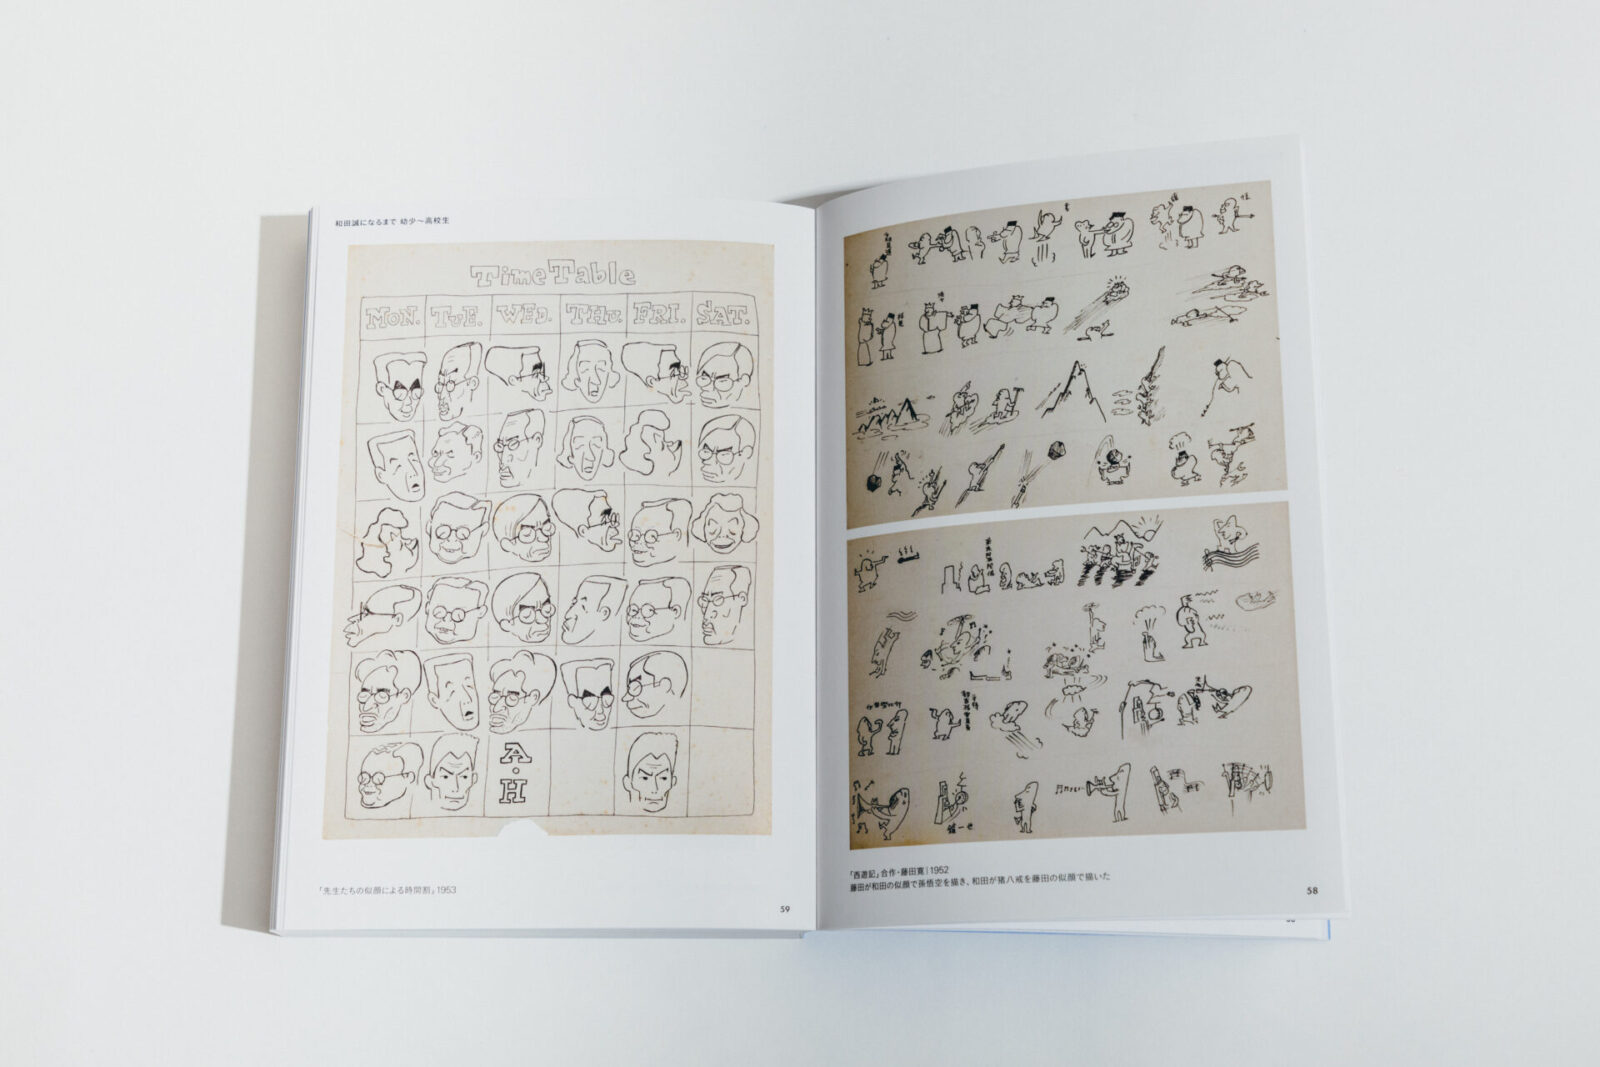 和田誠になるまで 幼少〜高校生
Time Table
MON. TUE. WED. THU. FRI. SAT.
A・H
「先生たちの似顔による時間割」1953
59
「西遊記」合作・藤田寛|1952
藤田が和田の似顔で孫悟空を描き、和田が猪八戒を藤田の似顔で描いた
58